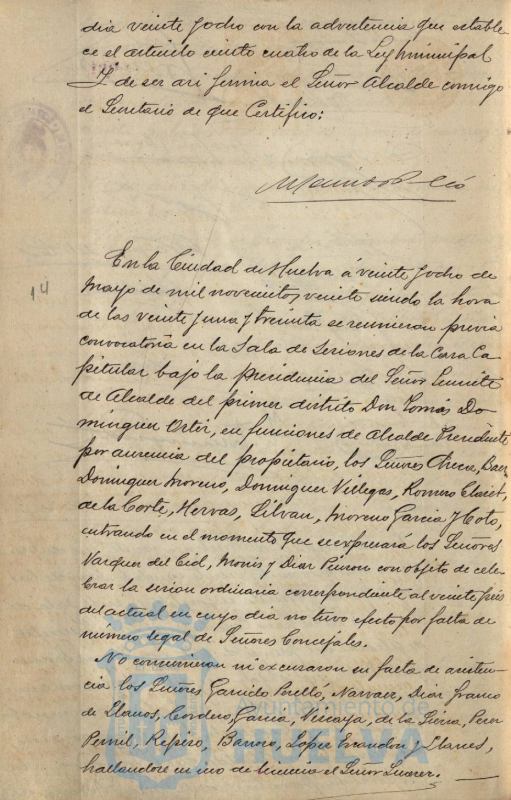 dia veinte y ocho con la advertencia que estable-
ce el articulo ciento cuatro de la Ley municipal
Y de ser asi firma el Señor Alcalde conmigo
el Secretario de que Certifico:
14
En la Ciudad de Huelva á veinte y ocho de
Mayo de mil novecientos veinte siendo la hora
de las veinte y una y treinta se reunieron previa
convocatoria en la Sala de Sesiones de la Casa Ca-
pitular bajo la presidencia del Señor Teniente
de Alcalde del primer distrito Don Tomás Do-
minguez Ortiz, en funciones de Alcalde Presidente
por ausencia del propietario, los Señores Checa, Baez,
Dominguez Moreno, Dominguez Villegas, Romero Claret,
de la Corte, Hervas, Silvan, Moreno Garcia y Coto,
entrando en el momento que se expresará los Señores
Vazquez del Cid, Monis y Diaz con objeto de cele-
brar la sesion ordinaria correspondiente al veinte y seis
del actual en cuyo dia no tuvo efecto por falta de
número legal de Señores Concejales.
No concurrieron ni excusaron su falta de asisten-
cia los Señores Garrido Perelló, Narvaez, Diaz Franco
de Llanos, Cordero, Garcia, Vizcaya, de la Sierra, Perez
Repiso, Barroso, Lopez y Llanes,
hallandose en uso de licencia el Señor
Ayuntamiento de
HUELVA